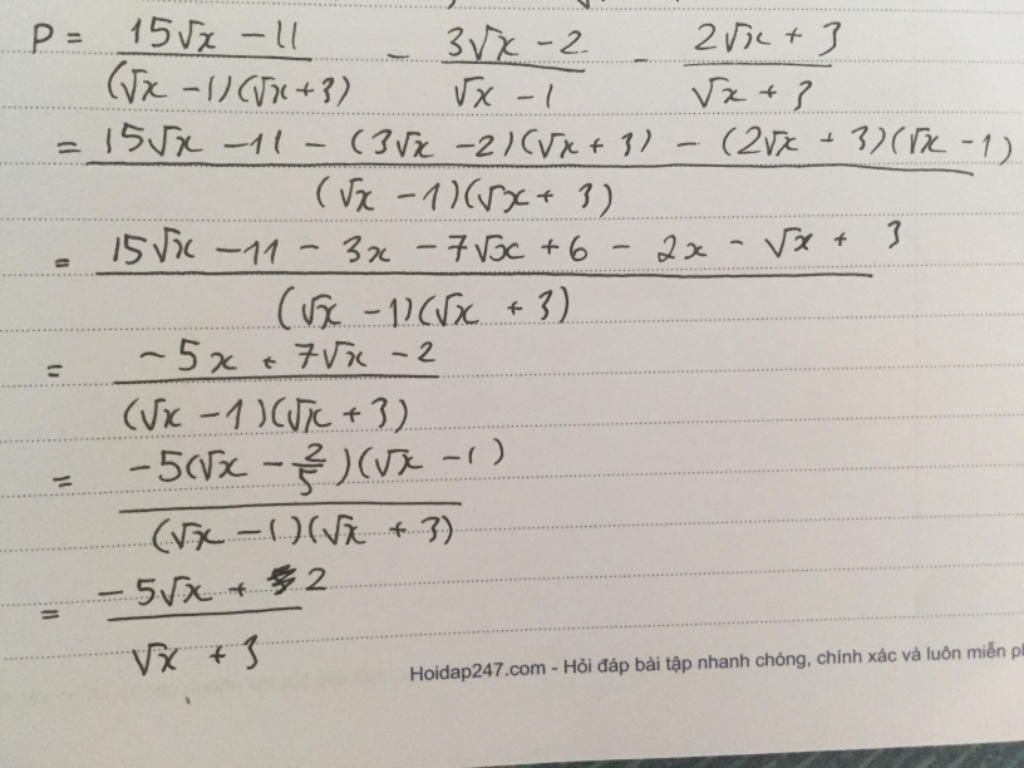 P = \frac{15√x - 11}{(√x - 1)(√x + 3)} - \frac{3√x - 2}{√x - 1} - \frac{2√x + 3}{√x + 3}
= \frac{15√x - 11 - (3√x - 2)(√x + 3) - (2√x + 3)(√x - 1)}{(√x - 1)(√x + 3)}
= \frac{15√x - 11 - 3x - 7√x + 6 - 2x - √x + 3}{(√x - 1)(√x + 3)}
= \frac{-5x + 7√x - 2}{(√x - 1)(√x + 3)}
= \frac{-5(√x - \frac{2}{5})(√x - 1)}{(√x - 1)(√x + 3)}
= \frac{-5√x + 2}{√x + 3}
Hoidap247.com - Hỏi đáp bài tập nhanh chóng, chính xác và luôn miễn